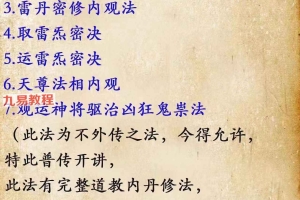 3.雷丹密修内观法
4.取雷炁密决
5.运雷炁密决
6.天尊法相内观
7.观运神将驱治凶狂鬼祟法
九易教程
（此法为不外传之法，今得允许，
特此普传开讲，
此法有完整道教内丹修法，